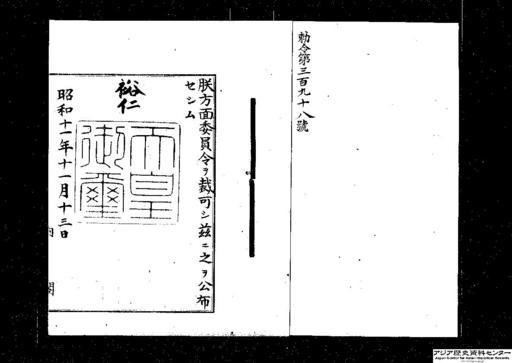 勅令第三百九十八號
朕方面委員令ヲ裁可シ茲ニ之ヲ公布
セシム
裕仁
天皇
御璽
昭和十一年十一月十三日
内閣
アジア歴史資料センター
Japan Center for Asian Historical Records